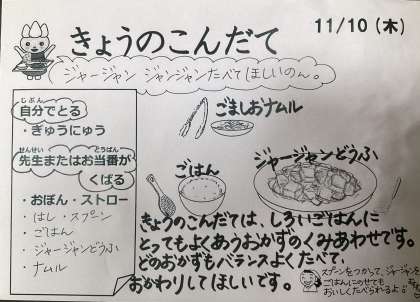 きょうのこんだて
11/10 (木)
ジャージャン ジャンジャンたべてほしいのん。
じぶん
自分でとる
・ぎゅうにゅう
せんせい とうばん
先生またはお当番が
くばる
・おぼん・ストロー
・はし・スプーン
・ごはん
・ジャージャンどうふ
・ナムル
ごましおナムル
ごはん
ジャージャンどうふ
きょうのこんだては、しろいごはんに
とってもよくあうおかずのくみあわせです。
どのおかずもバランスよくたべて、
おかわりしてほしいです。
スプーンをつかって、ジャージャンを
ごはんにのせても
おいしくたべられるよ♪